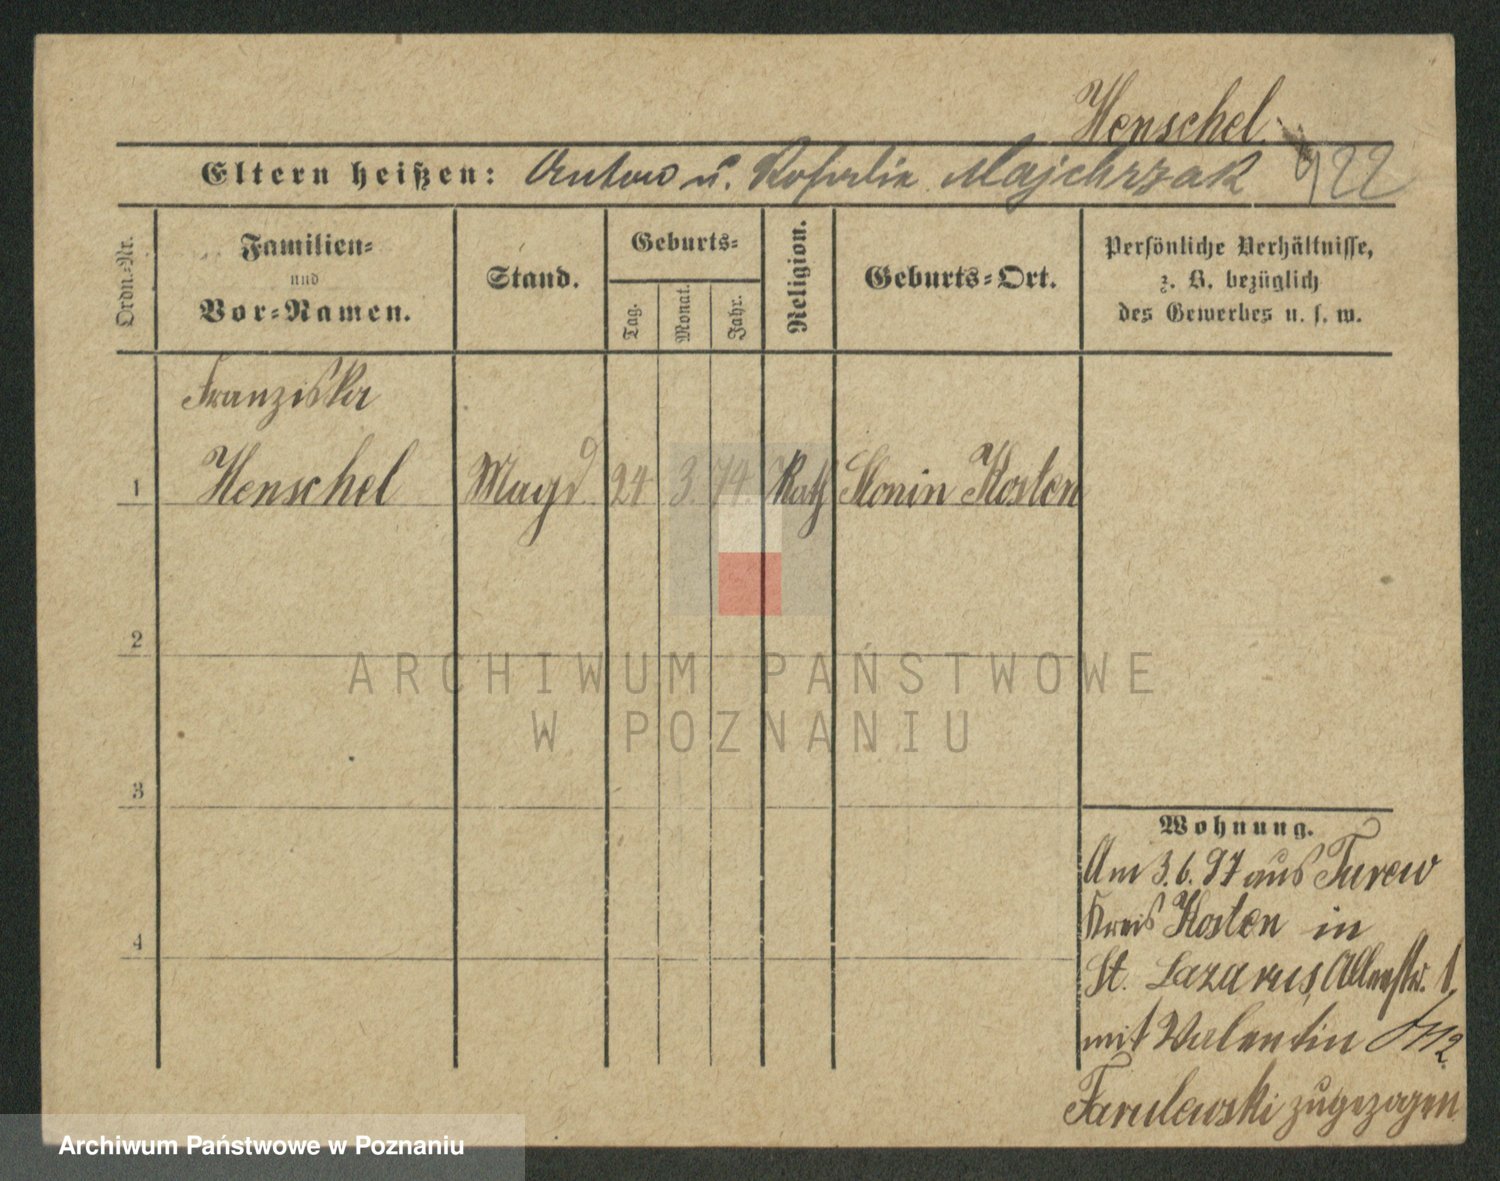 Henschel
Eltern heißen: Anton u. Rosalie Majchrzak 922
Ordn.-Nr.
Familien-
und
Vor-Namen.
Stand.
Geburts-
Tag.
Monat.
Jahr.
Religion.
Geburts-Ort.
Persönliche Verhältnisse,
z. B. bezüglich
des Gewerbes u. s. w.
Franziska
1 Henschel Magd 24 3. 74. Kath Słonin Kosten
2
3
4
Wohnung.
Am 3.6.97 aus Turew
Kreis Kosten in
St. Lazarus 1.
mit Valentin
zugezogen
ARCHIWUM PAŃSTWOWE
W POZNANIU
Archiwum Państwowe w Poznaniu